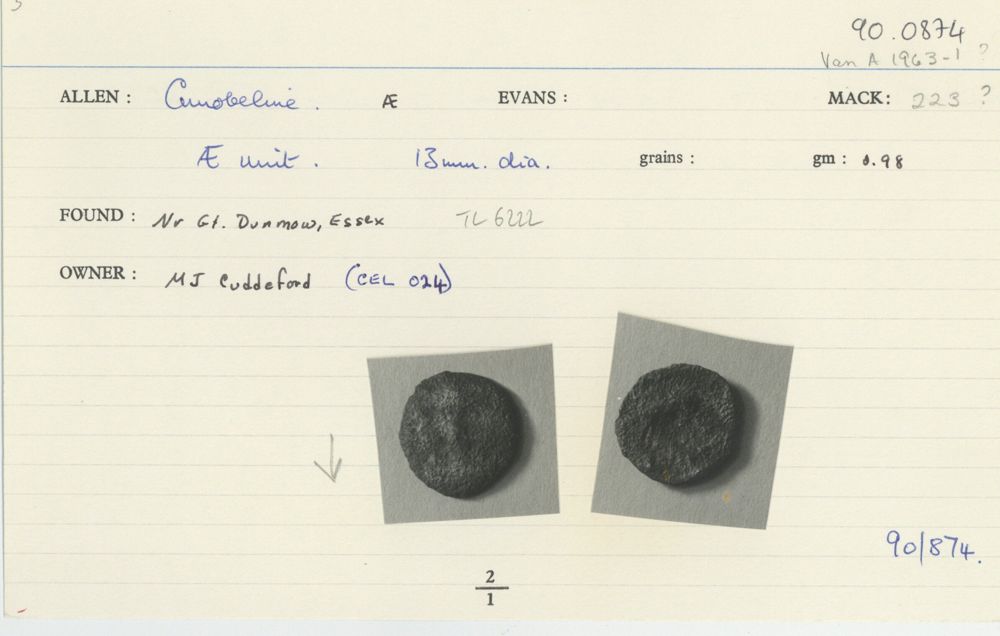 90.0874
Van A 1963-1 ?
ALLEN : Cunobeline . Æ EVANS : MACK: 223 ?
Æ unit . 13mm. dia. grains : gm : 0.98
FOUND : Nr Gt. Dunmow, Essex TL 6222
OWNER : MJ Cuddeford (CEL 024)
90/874.
2
1